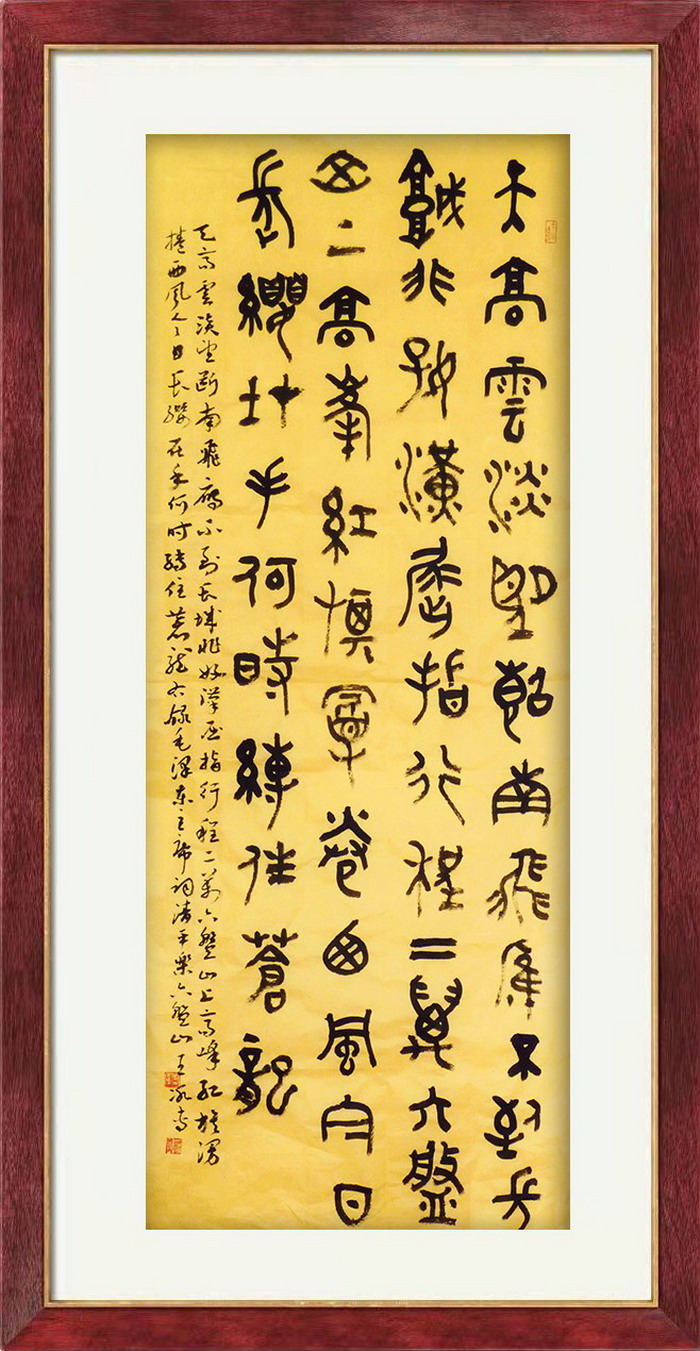 天高雲淡望斷南飛雁不到長
城非好漢屈指行程二萬六盤
山上高峯紅旗漫卷西風今日
長纓在手何時縛住蒼龍
天高雲淡望斷南飛雁不到長城非好漢屈指行程二萬六盤山上高峰紅旗漫
捲西風今日長纓在手何時縛住蒼龍右錄毛澤東主席詞清平樂六盤山王